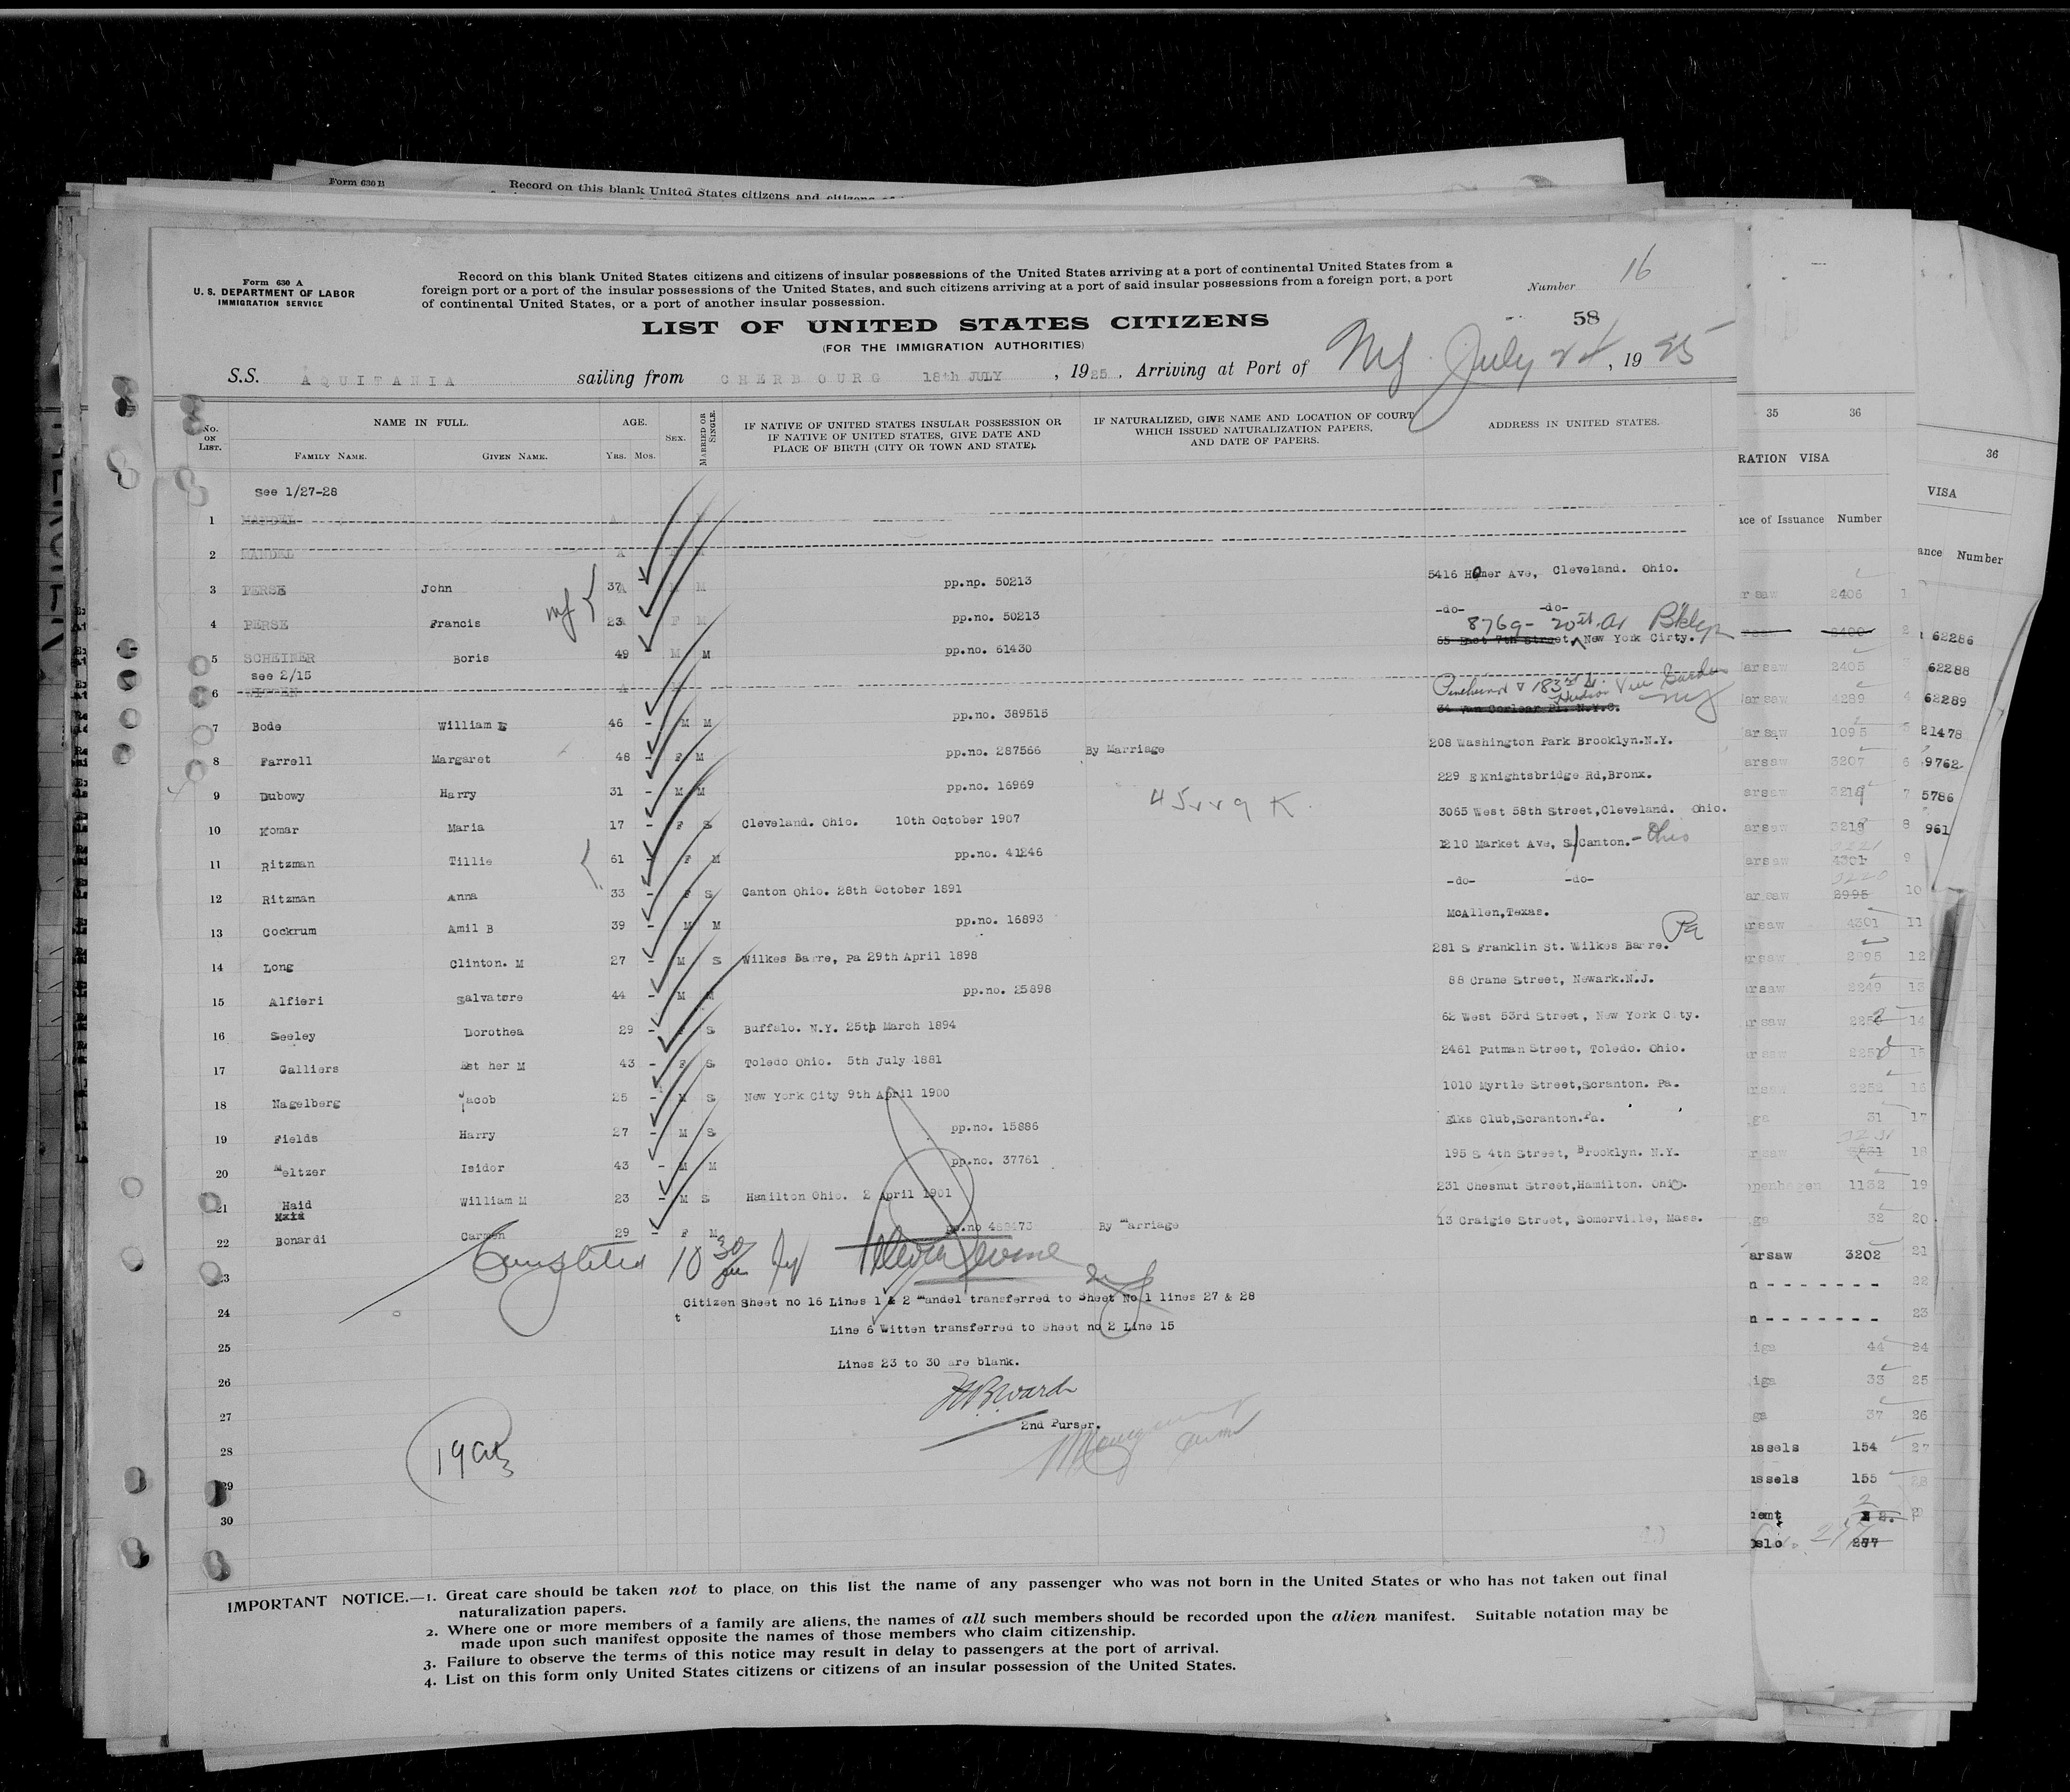 Form 630 B
Record on this blank United States citizens and citizens
Form 630 A
U. S. DEPARTMENT OF LABOR
IMMIGRATION SERVICE
Record on this blank United States citizens and citizens of insular possessions of the United States arriving at a port of continental United States from a
foreign port or a port of the insular possessions of the United States, and such citizens arriving at a port of said insular possessions from a foreign port, a port
of continental United States, or a port of another insular possession.
Number 16
58
LIST OF UNITED STATES CITIZENS
(FOR THE IMMIGRATION AUTHORITIES)
S.S. AQUITANIA sailing from CHERBOURG 18th JULY, 1925. Arriving at Port of NY July 24, 1925
No. ON LIST. NAME IN FULL. FAMILY NAME. GIVEN NAME. AGE. YRS. MOS. SEX. MARRIED OR SINGLE. IF NATIVE OF UNITED STATES INSULAR POSSESSION OR IF NATIVE OF UNITED STATES, GIVE DATE AND PLACE OF BIRTH (CITY OR TOWN AND STATE). IF NATURALIZED, GIVE NAME AND LOCATION OF COURT WHICH ISSUED NATURALIZATION PAPERS, AND DATE OF PAPERS. ADDRESS IN UNITED STATES.
see 1/27-28
1 MANDEL
2 MANDEL
3 PERSE John 37 M M pp.np. 50213 5416 Homer Ave, Cleveland. Ohio.
4 PERSE Francis 23 F M pp.no. 50213 -do- -do-
8769- 20th Av Bklyn
5 SCHEINER Boris 49 M M pp.no. 61430 65 East 7th Street, New York Cirty.
see 2/15
6 WITTEN
Pinehurst & 183rd St. Hudson View Garden NY
7 Bode William E 46 - M M pp.no. 389515 34 Van Corlear Pl. N.Y.C.
8 Farrell Margaret 48 - F M pp.no. 287566 By Marriage 208 Washington Park Brooklyn.N.Y.
9 Dubowy Harry 31 - M M pp.no. 16969 229 E Knightsbridge Rd,Bronx.
10 Komar Maria 17 - F S Cleveland. Ohio. 10th October 1907 3065 West 58th Street,Cleveland. Ohio.
11 Ritzman Tillie 61 - F M pp.no. 41246 1210 Market Ave, S/Canton. - Ohio
12 Ritzman Anna 33 - F S Canton Ohio. 28th October 1891 -do- -do-
13 Cockrum Amil B 39 - M M pp.no. 16893 McAllen,Texas.
14 Long Clinton. M 27 - M S Wilkes Barre, Pa 29th April 1898 281 S Franklin St. Wilkes Barre. Pa
15 Alfieri Salvatore 44 - M M pp.no. 25898 88 Crane Street, Newark.N.J.
16 Seeley Dorothea 29 - F S Buffalo. N.Y. 25th March 1894 62 West 53rd Street, New York City.
17 Galliers Est her M 43 - F S Toledo Ohio. 5th July 1881 2461 Putman Street, Toledo. Ohio.
18 Nagelberg Jacob 25 - M S New York City 9th April 1900 1010 Myrtle Street,Scranton. Pa.
19 Fields Harry 27 - M S pp.no. 15886 Elks Club,Scranton.Pa.
20 Meltzer Isidor 43 - M M pp.no. 37761 195 S 4th Street, Brooklyn. N.Y.
21 Haid William M 23 - M S Hamilton Ohio. 2 April 1901 231 Chesnut Street,Hamilton. Ohio.
22 Bonardi Carmen 29 - F M By Marriage 13 Craigie Street, Somerville, Mass.
23 Completed 10 30
24 Citizen Sheet no 16 Lines 1 & 2 Mandel transferred to Sheet No 1 lines 27 & 28
Line 6 Witten transferred to Sheet no 2 Line 15
25
Lines 23 to 30 are blank.
26
27 2nd Purser.
28
29
30
IMPORTANT NOTICE.—1. Great care should be taken not to place on this list the name of any passenger who was not born in the United States or who has not taken out final
naturalization papers.
2. Where one or more members of a family are aliens, the names of all such members should be recorded upon the alien manifest. Suitable notation may be
made upon such manifest opposite the names of those members who claim citizenship.
3. Failure to observe the terms of this notice may result in delay to passengers at the port of arrival.
4. List on this form only United States citizens or citizens of an insular possession of the United States.
35 36
RATION VISA
Number
36
VISA
Number
62286
62288
62289
21478
9762
5786
961
arsaw 3202 21
ussels 154 27
ussels 155 28